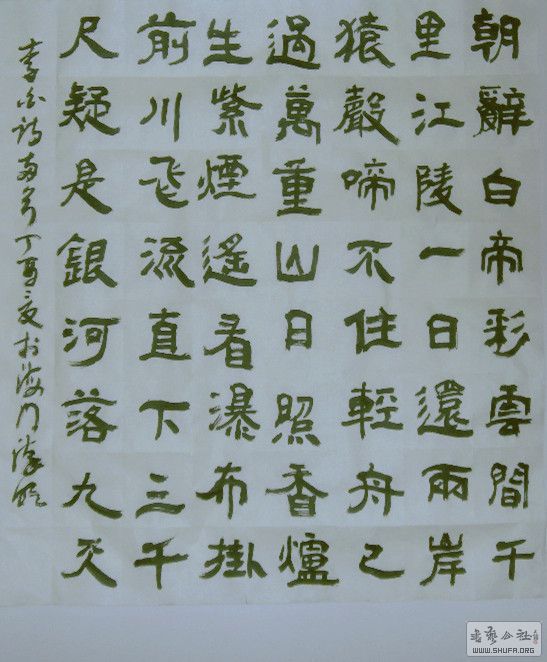 朝辭白帝彩雲間千
里江陵一日還兩岸
猿聲啼不住輕舟已
過萬重山日照香爐
生紫煙遙看瀑布掛
前川飛流直下三千
尺疑是銀河落九天
李白詩兩首丁酉之夏於海門
書藝公社
WWW.SHUFA.ORG